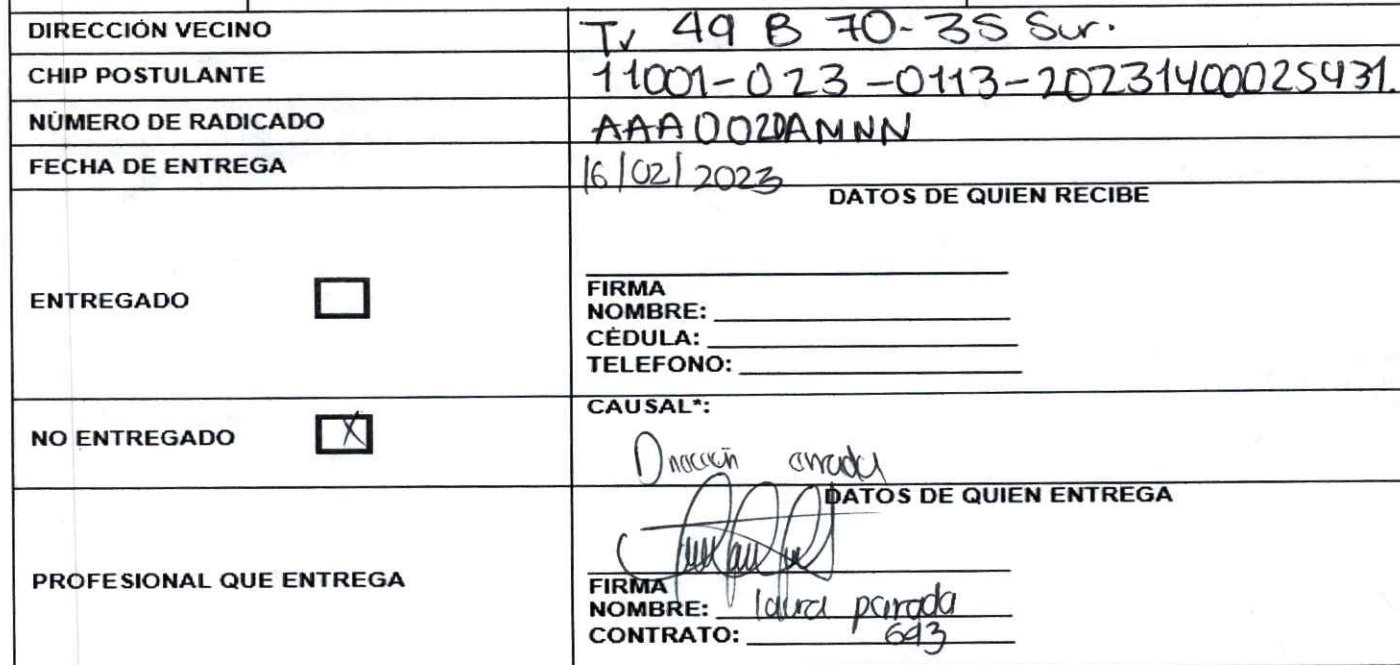 DIRECCIÓN VECINO Tv 49 B 70-35 Sur.
CHIP POSTULANTE 11001-023-0113-20231400025431.
NÚMERO DE RADICADO AAA0020AMNN
FECHA DE ENTREGA 16/02/2023
DATOS DE QUIEN RECIBE
ENTREGADO
FIRMA
NOMBRE:
CÉDULA:
TELEFONO:
CAUSAL*:
NO ENTREGADO X
Dirección errada
DATOS DE QUIEN ENTREGA
PROFESIONAL QUE ENTREGA
FIRMA
NOMBRE: laura parada
CONTRATO: 643